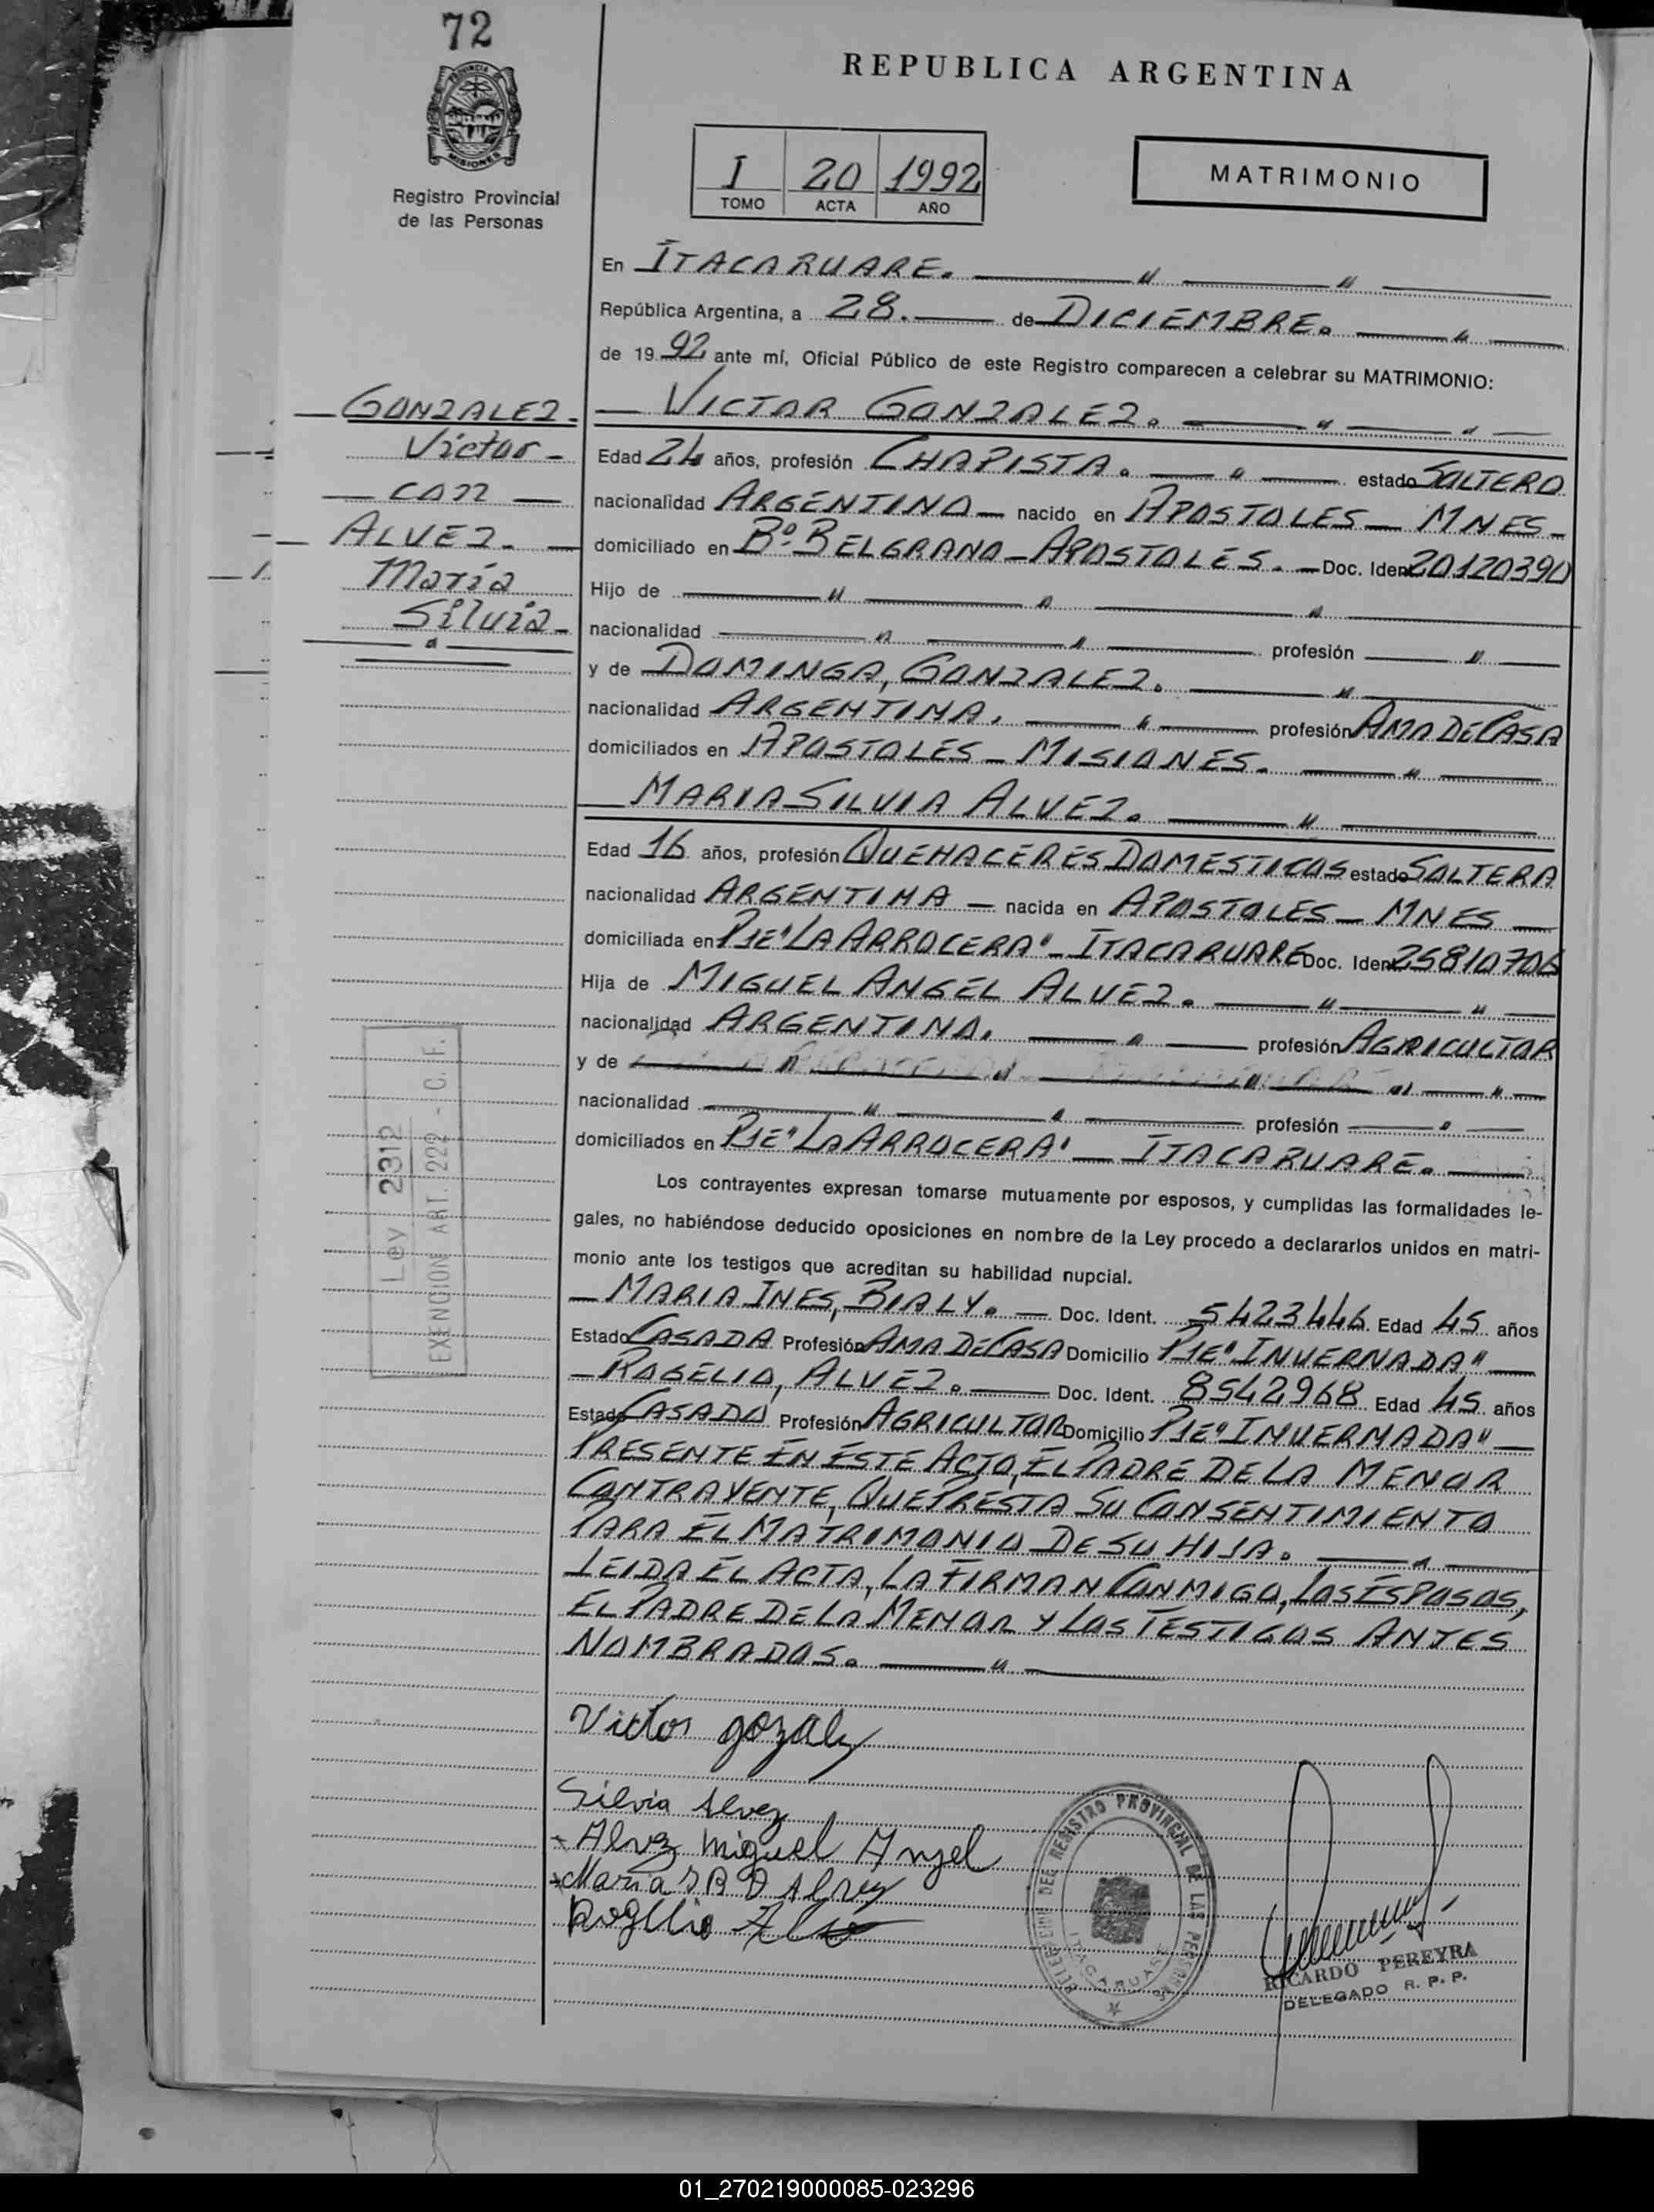 72
PROVINCIA DE
MISIONES
Registro Provincial
de las Personas
REPUBLICA ARGENTINA
I 20 1992
TOMO ACTA AÑO
MATRIMONIO
En ITACARUARE.
República Argentina, a 28. de DICIEMBRE.
de 1992 ante mí, Oficial Público de este Registro comparecen a celebrar su MATRIMONIO:
GONZALEZ.
Victor
con
ALVEZ.
Maria
Silvia
VICTOR GONZALEZ.
Edad 24 años, profesión CHAPISTA. estado SOLTERO
nacionalidad ARGENTINO nacido en APOSTOLES - MNES
domiciliado en Bº. BELGRANO - APOSTOLES. Doc. Iden 20120390
Hijo de
nacionalidad profesión
y de DOMINGA, GONZALEZ.
nacionalidad ARGENTINA. profesión AMA DE CASA
domiciliados en APOSTOLES - MISIONES.
MARIA SILVIA ALVEZ.
Edad 16 años, profesión QUEHACERES DOMESTICOS estado SOLTERA
nacionalidad ARGENTINA nacida en APOSTOLES - MNES
domiciliada en PJE "LA ARROCERA" - ITACARUARE Doc. Iden 25810706
Hija de MIGUEL ANGEL ALVEZ.
nacionalidad ARGENTINA. profesión AGRICULTOR
y de
nacionalidad profesión
domiciliados en PJE "LA ARROCERA" - ITACARUARE.
Los contrayentes expresan tomarse mutuamente por esposos, y cumplidas las formalidades le-
gales, no habiéndose deducido oposiciones en nombre de la Ley procedo a declararlos unidos en matri-
monio ante los testigos que acreditan su habilidad nupcial.
MARIA INES, BIALY. Doc. Ident. 5423446 Edad 45 años
Estado CASADA Profesión AMA DE CASA Domicilio PJE "INVERNADA"
ROGELIO, ALVEZ. Doc. Ident. 8542968 Edad 45 años
Estado CASADO Profesión AGRICULTOR Domicilio PJE "INVERNADA"
PRESENTE EN ESTE ACTO, EL PADRE DE LA MENOR
CONTRAYENTE, QUE PRESTA SU CONSENTIMIENTO
PARA EL MATRIMONIO DE SU HIJA.
LEIDA EL ACTA, LA FIRMAN CONMIGO, LOS ESPOSOS,
EL PADRE DE LA MENOR Y LOS TESTIGOS ANTES
NOMBRADOS.
Ley 2312
EXENCION ART. 222 - C. F.
Victor gozalz
Silvia Alvez
Alvez Miguel Angel
Maria I B D Alvez
Rogelio
DELEGACION DEL REGISTRO PROVINCIAL DE LAS PERSONAS
ITACARUARE
RICARDO PEREYRA
DELEGADO R. P. P.
01_270219000085-023296